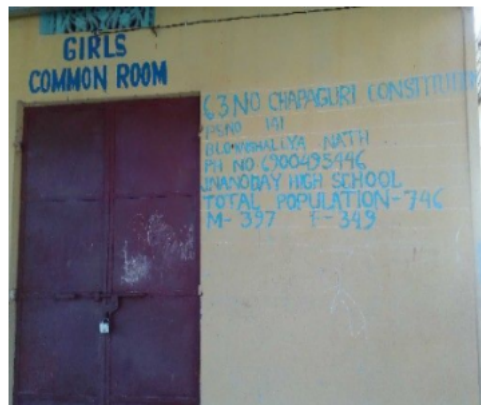 GIRLS
COMMON ROOM
63 NO CHAPAGURI
PS NO 141
NATH
PH NO 6900495446
JNANODAY HIGH SCHOOL
TOTAL POPULATION-746
M- 397 F-349